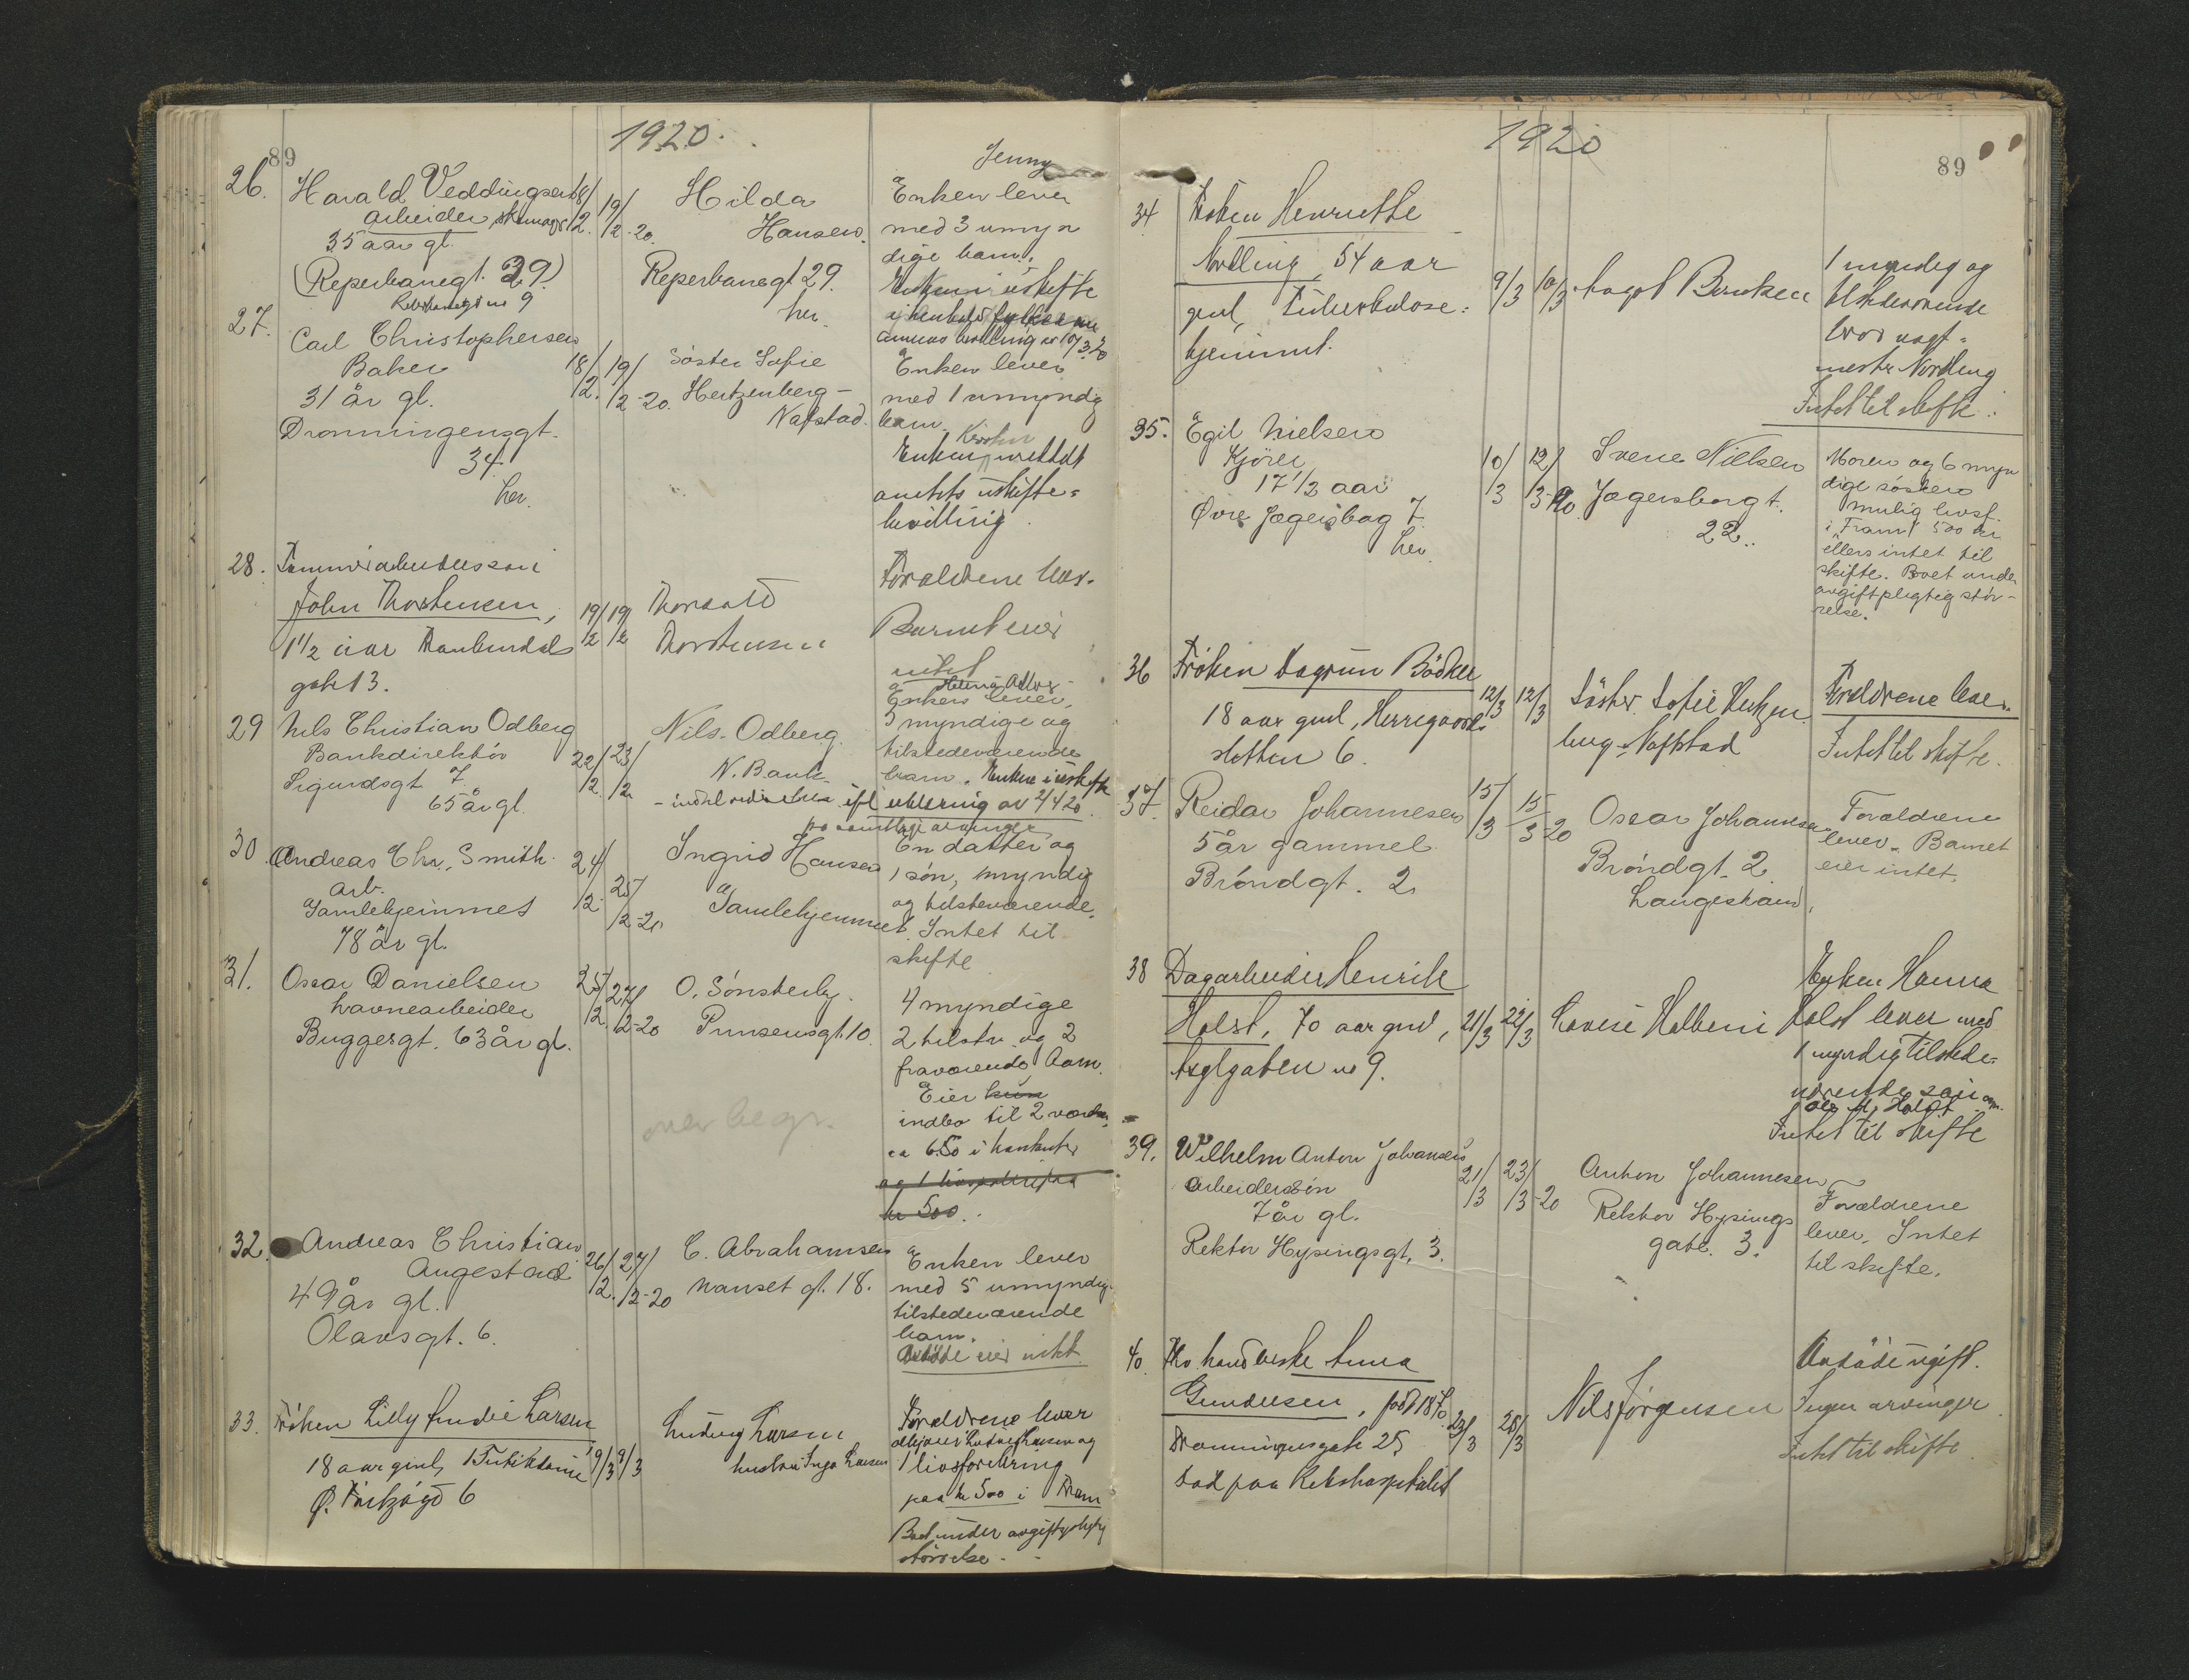 89
1920.
26. Harald Veddingsen 18/2. 19/2-20. Hilda Hansen.
arbeider skomager
35 aar gl.
(Reperbanegt. 29)
Reperbanegt 29.
her.
Jenny
Enken lever
med 3 umyn
dige barn.
Enken i uskifte
27. Carl Christophersen
Baker
31 år gl.
Dronningensgt.
34
her.
18/2. 19/2-20.
Søster Sofie
Hertzenberg-
Nafstad.
Enken lever
med 1 umyndig
barn. Kirsten
Enken
uskifte=
bevilling.
28. Tømmerarbeidersøn
John Thorstensen,
1 1/2 aar
gate 13.
19/2 19/2
Thorvald
Thorstensen
Forældrene lever.
Barnet eier
intet
29 Nils Christian Odberg
Bankdirektör
Sigurdsgt 7.
65 år gl.
22/2. 23/2
Nils Odberg.
N. Bank.
Enken lever,
3 myndige og
tilstedeværende
barn. Enken i uskifte
ifl erklæring av 2/4 20
30. Andreas Chr. Smith.
arb.
Gamlehjemmet
78 år gl.
24/2. 25/2-20
Ingrid Hansen
Gamlehjemmet.
En datter og
1 søn, myndig
og tilsteværende.
Intet til
skifte
31. Oscar Danielsen
havnearbeider
Buggegt. 63 år gl.
25/2. 27/2-20
O. Sønsterby.
Prinsensgt. 10.
4 myndige
2 tilstv. og 2
fraværende barn.
Eier kun
indbo til 2 værelser,
ca 650 i kontanter
kr 500.
over begr.
32. Andreas Christian
Augestad
49 år gl.
Olavsgt. 6.
26/2. 27/2-20
C. Abrahamsen
Nanset gt. 18.
Enken lever
med 5 umyndig.
tilstedeværende
barn.
Avdøde eier intet.
33. Frøken Lilly Larsen
18 aar gml,
6
9/3 9/3
Ludvig Larsen
Inga Larsen
Forældrene lever
1 livsforsikring
paa kr 500 i Fram
Boet under avgiftspligtig
størrelse.
1920
89
34 Frøken Henriette
Nordling, 54 aar
gml, Tuberkulose=
hjemmet.
9/3 10/3
Aagot Berntsen
1 myndig og
tilstedeværende
bror vagt=
mester Nordling
Intet til skifte.
35. Egil Nielsen
Kjører
17 1/2 aar
Øvre Jegersborg 7.
her.
10/3 12/3-20.
Svene Nielsen
Jægersborgt.
22.
Moren og 6 myn
dige søsken
mulig livsf.
i "Fram" 500 kr
ellers intet til
skifte. Boet under
avgiftpligtig stör-
relse.
36 Frøken Dagrun Bödker
18 aar gml, Herregaards-
sletten 6.
12/3 12/3
Søster Sofie Hertzen
berg-Nafstad
Forældrene lever.
Intet til skifte.
37. Reidar Johannesen
5 år gammel
Brøndgt. 2.
15/3 15/3-20
Oscar Johannesen
Brøndgt. 2.
Langestrand.
Forældrene
lever. Barnet
eier intet.
38 Dagarbeider Henrik
Holst, 70 aar gml,
Asylgaten no 9.
21/3 22/3
Lovise Halberi
Enken Hanna
Holst lever med
1 myndig tilstede=
værende søn
Intet til skifte
39. Wilhelm Anton Johansen
Arbeidersön
7 år gl.
Rektor Hysingsgt. 3.
21/3 23/3-20
Anton Johannesen
Rektor Hysings
gate. 3.
Forældrene
lever. Intet
til skifte.
40. Anna
Gundersen, född 1870.
Dronningensgate 25
Död paa Rikshospitalet
23/3 28/3
Nils Jörgensen
Avdöde ugift.
Ingen arvinger
Intet til skifte